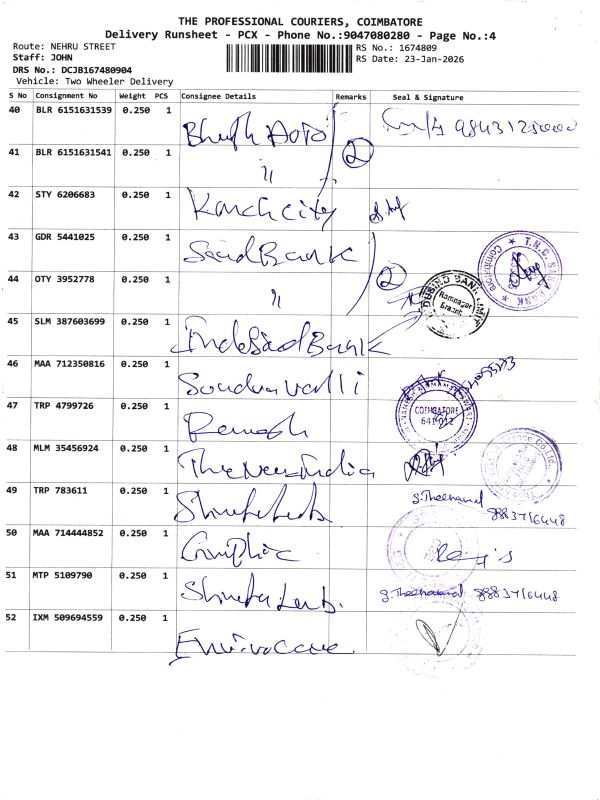 THE PROFESSIONAL COURIERS, COIMBATORE
Delivery Runsheet - PCX - Phone No.:9047080280 - Page No.:4
Route: NEHRU STREET
RS No.: 1674809
Staff: JOHN
RS Date: 23-Jan-2026
DRS No.: DCJB167480904
Vehicle: Two Wheeler Delivery
S No Consignment No Weight PCS Consignee Details Remarks Seal & Signature
40 BLR 6151631539 0.250 1
41 BLR 6151631541 0.250 1 " 2
42 STY 6206683 0.250 1 city
43 GDR 5441025 0.250 1 Bank
44 OTY 3952778 0.250 1 " 2
Ramnagar
Branch
45 SLM 387603699 0.250 1 IndusindBank
46 MAA 712350816 0.250 1 Soundravalli
47 TRP 4799726 0.250 1 Ramesh
COIMBATORE
641 012
48 MLM 35456924 0.250 1 The New India
49 TRP 783611 0.250 1
8883716448
50 MAA 714444852 0.250 1 Graphic
51 MTP 5109790 0.250 1 8883716448
52 IXM 509694559 0.250 1 Envirocare